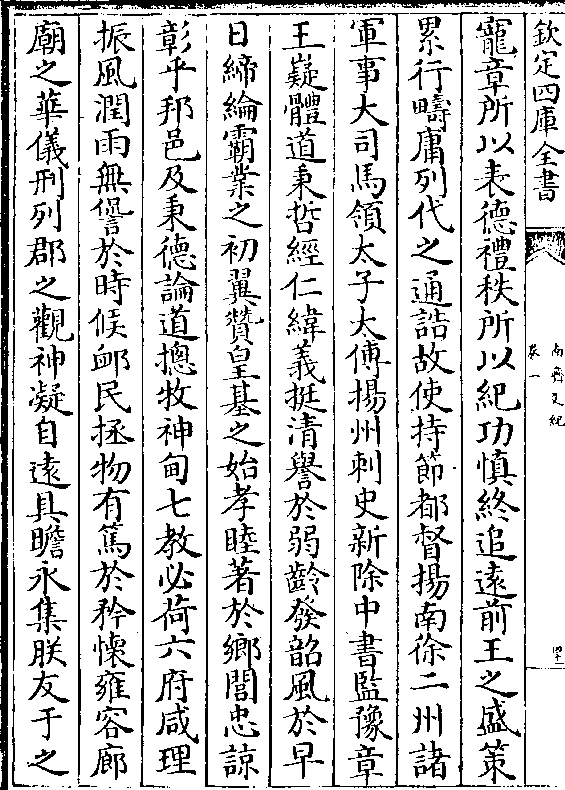 欽定四庫全書
南齊文紀
卷一
寵章所以表德禮秩所以紀功慎終追遠前王之盛策
累行疇庸列代之通誥故使持節都督揚南徐二州諸
軍事大司馬領太子太傅揚州刺史新除中書監豫章
王嶷體道秉哲經仁緯義挺清譽於弱齡發韶風於早
日締綸霸業之初翼贊皇基之始孝睦著於鄉閭忠諒
彰乎邦邑及秉德論道摠牧神甸七教必荷六府咸理
振風潤雨無諐於時候卹民拯物有篤於矜懷雍容廊
廟之華儀刑列郡之觀神凝自遠具瞻永集朕友于之